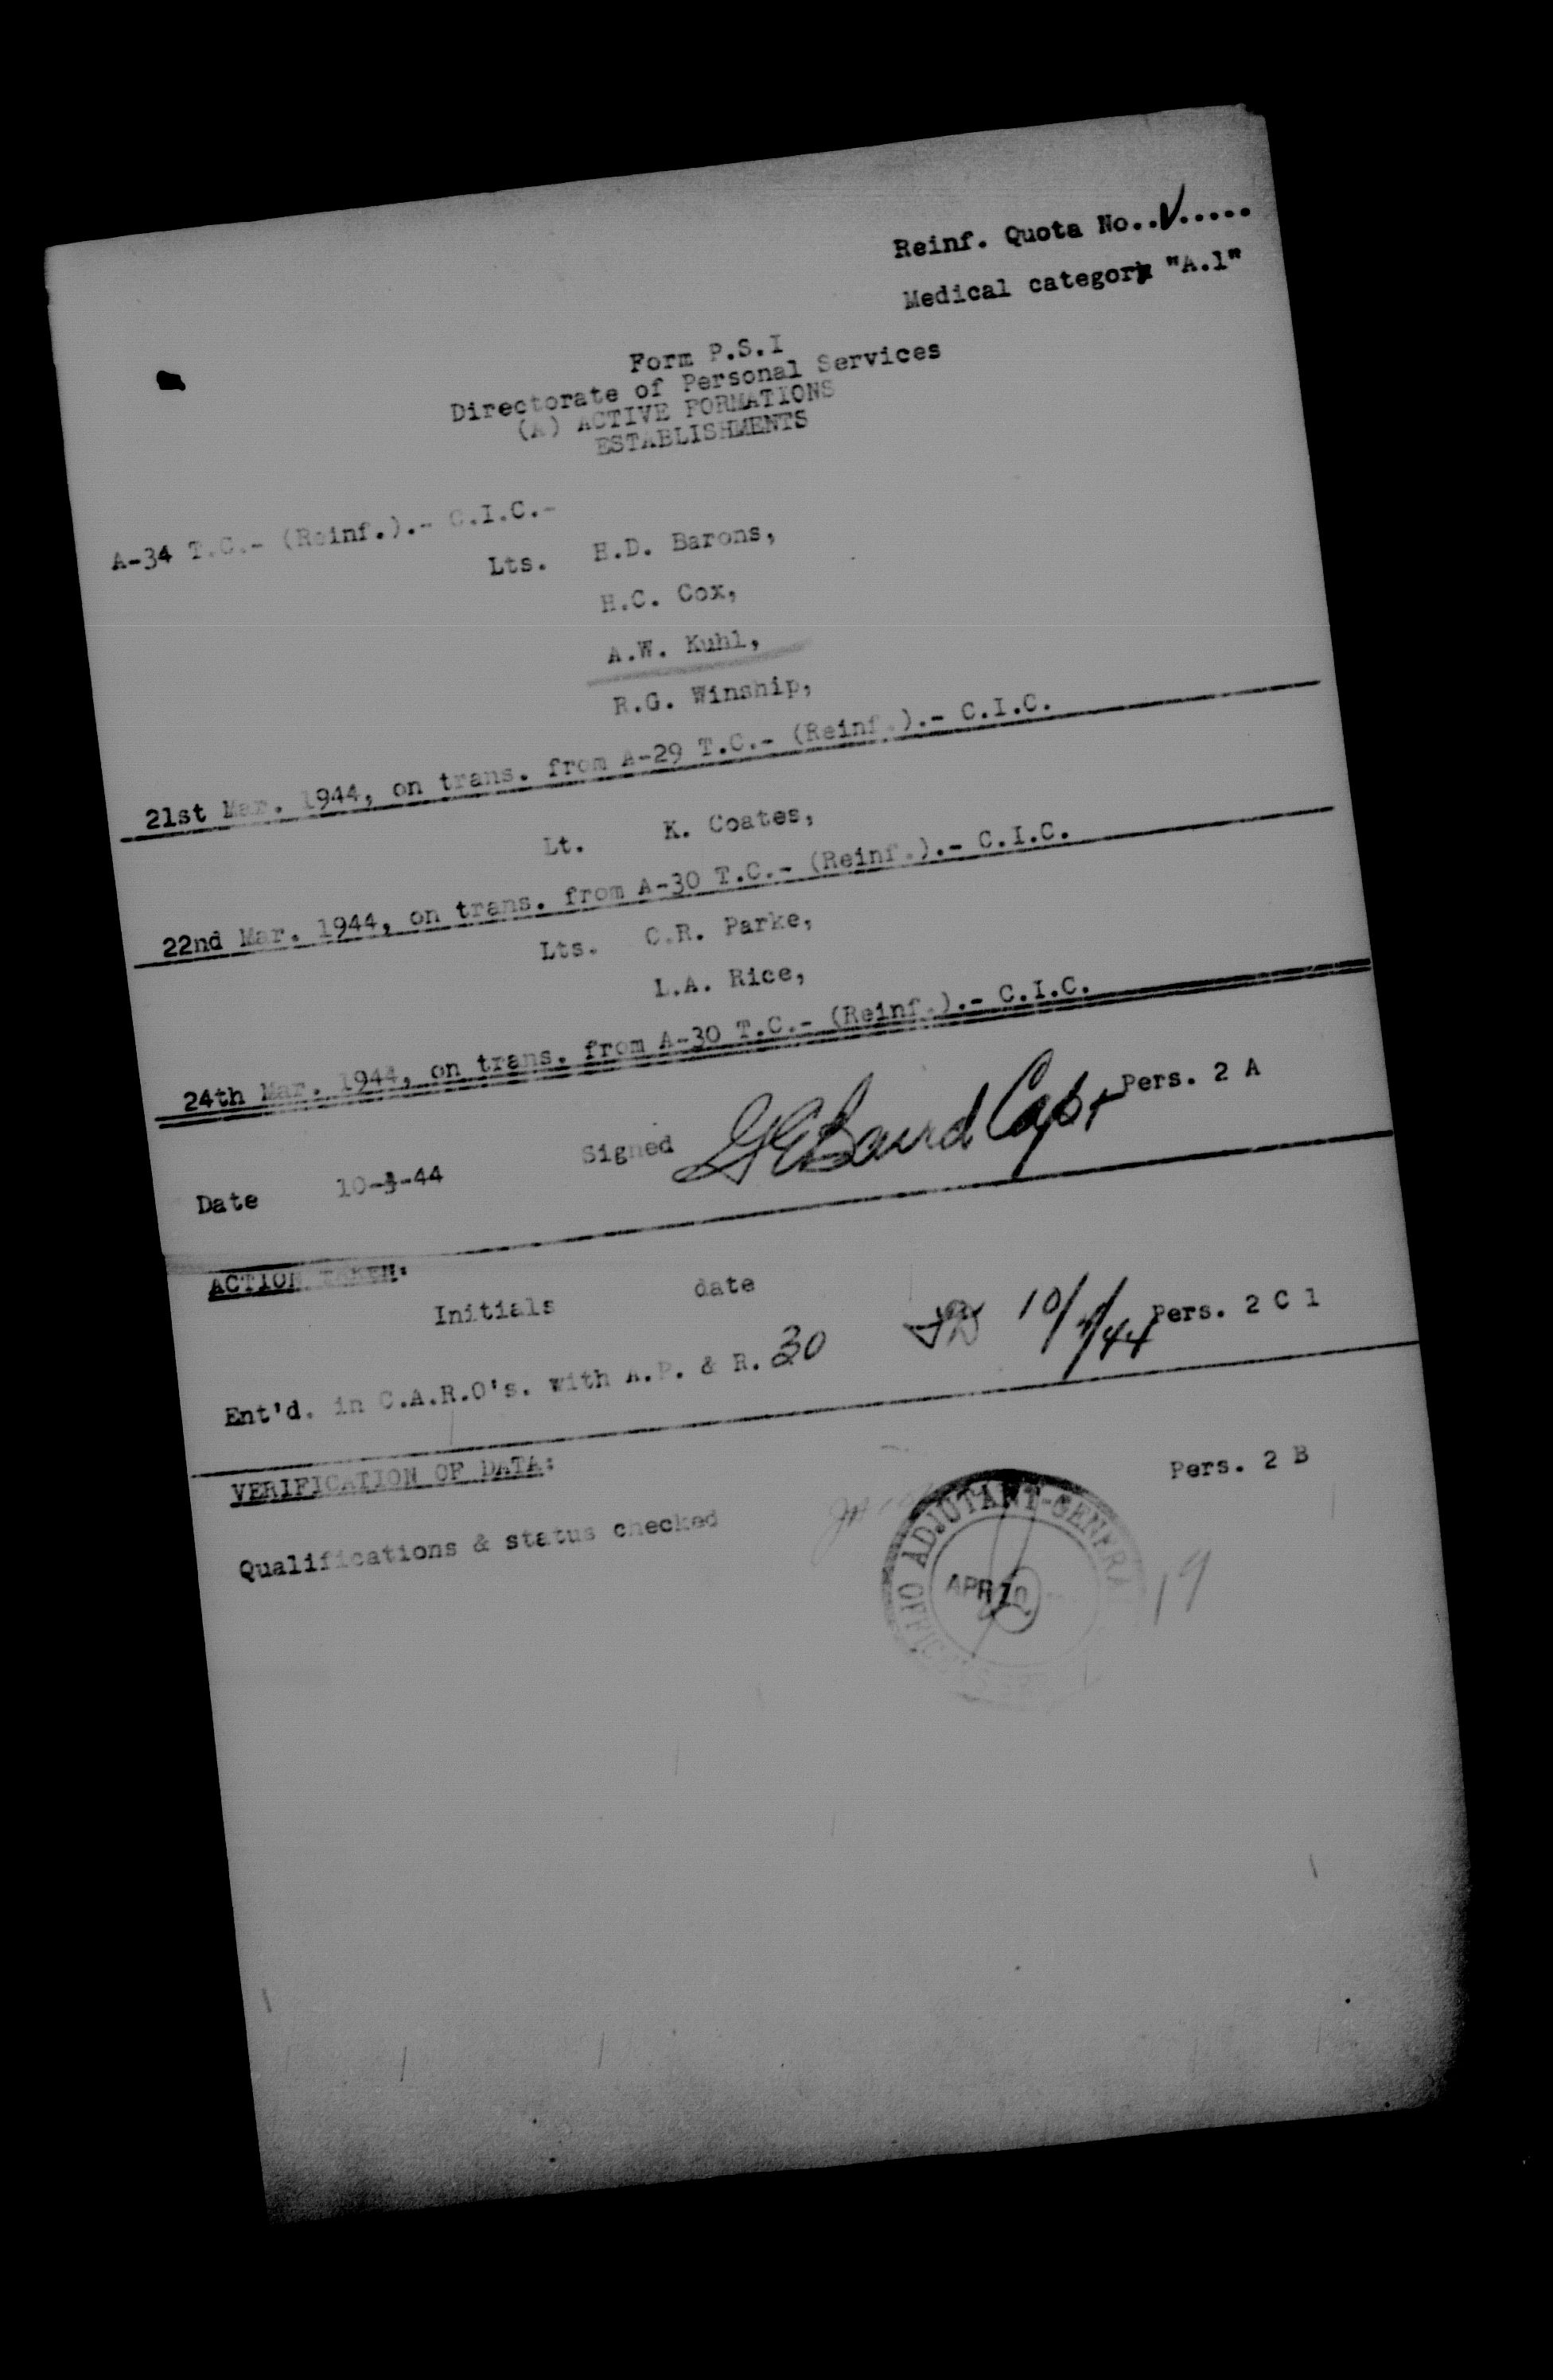 Reinf. Quota No..✓.....
Medical category "A.1"
Form P.S.I
Directorate of Personal Services
(A) ACTIVE FORMATIONS
ESTABLISHMENTS
A-34 T.C.- (Reinf.).- C.I.C.-
Lts. H.D. Barons,
H.C. Cox,
A.W. Kuhl,
R.G. Winship,
21st Mar. 1944, on trans. from A-29 T.C.- (Reinf.).- C.I.C.
Lt. K. Coates,
22nd Mar. 1944, on trans. from A-30 T.C.- (Reinf.).- C.I.C.
Lts. C.R. Parke,
L.A. Rice,
24th Mar. 1944, on trans. from A-30 T.C.- (Reinf.).- C.I.C.
Signed GEBaird Capt Pers. 2 A
Date 10- -44
ACTION TAKEN:
Initials date
Ent'd. in C.A.R.O's. with A.P. & R. 30 10/4/44 Pers. 2 C 1
VERIFICATION OF DATA:
Pers. 2 B
Qualifications & status checked
ADJUTANT-GENERAL
APR 10
19